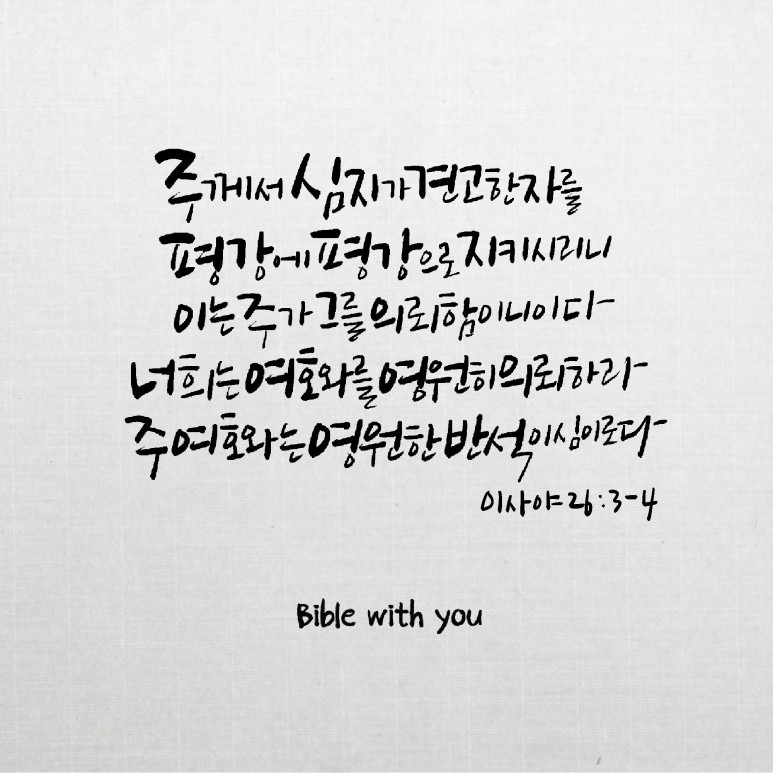 주께서 심지가 견고한 자를
평강에 평강으로 지키시리니
이는 주가 그를 의뢰함이니이다
너희는 여호와를 영원히 의뢰하라
주 여호와는 영원한 반석이심이로다
이사야 26:3-4
Bible with you